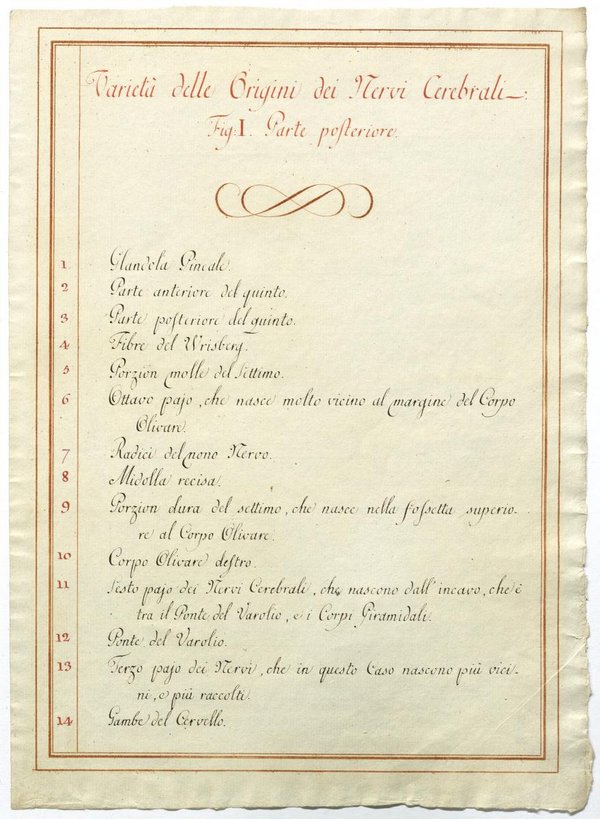 Varietà delle Origini dei Nervi Cerebrali.
Fig: I. Parte posteriore.
1 Glandola Pineale.
2 Parte anteriore del quinto.
3 Parte posteriore del quinto.
4 Fibre del Wrisberg.
5 Porzion molle del Settimo.
6 Ottavo pajo, che nasce molto vicino al margine del Corpo
Olivare.
7 Radici del nono Nervo.
8 Midolla recisa.
9 Porzion dura del settimo, che nasce nella fossetta superio-
re al Corpo Olivare.
10 Corpo Olivare destro.
11 Sesto pajo dei Nervi Cerebrali, che nascono dall' incavo, che è
tra il Ponte del Varolio, e i Corpi Piramidali.
12 Ponte del Varolio.
13 Terzo pajo dei Nervi, che in questo Caso nascono più vici-
ni, e più raccolti.
14 Gambe del Cervello.